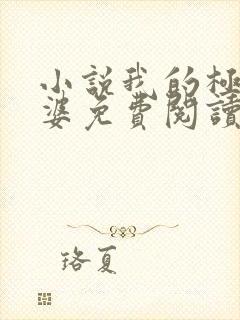 小說我的極
婆免費閱讀
珞夏